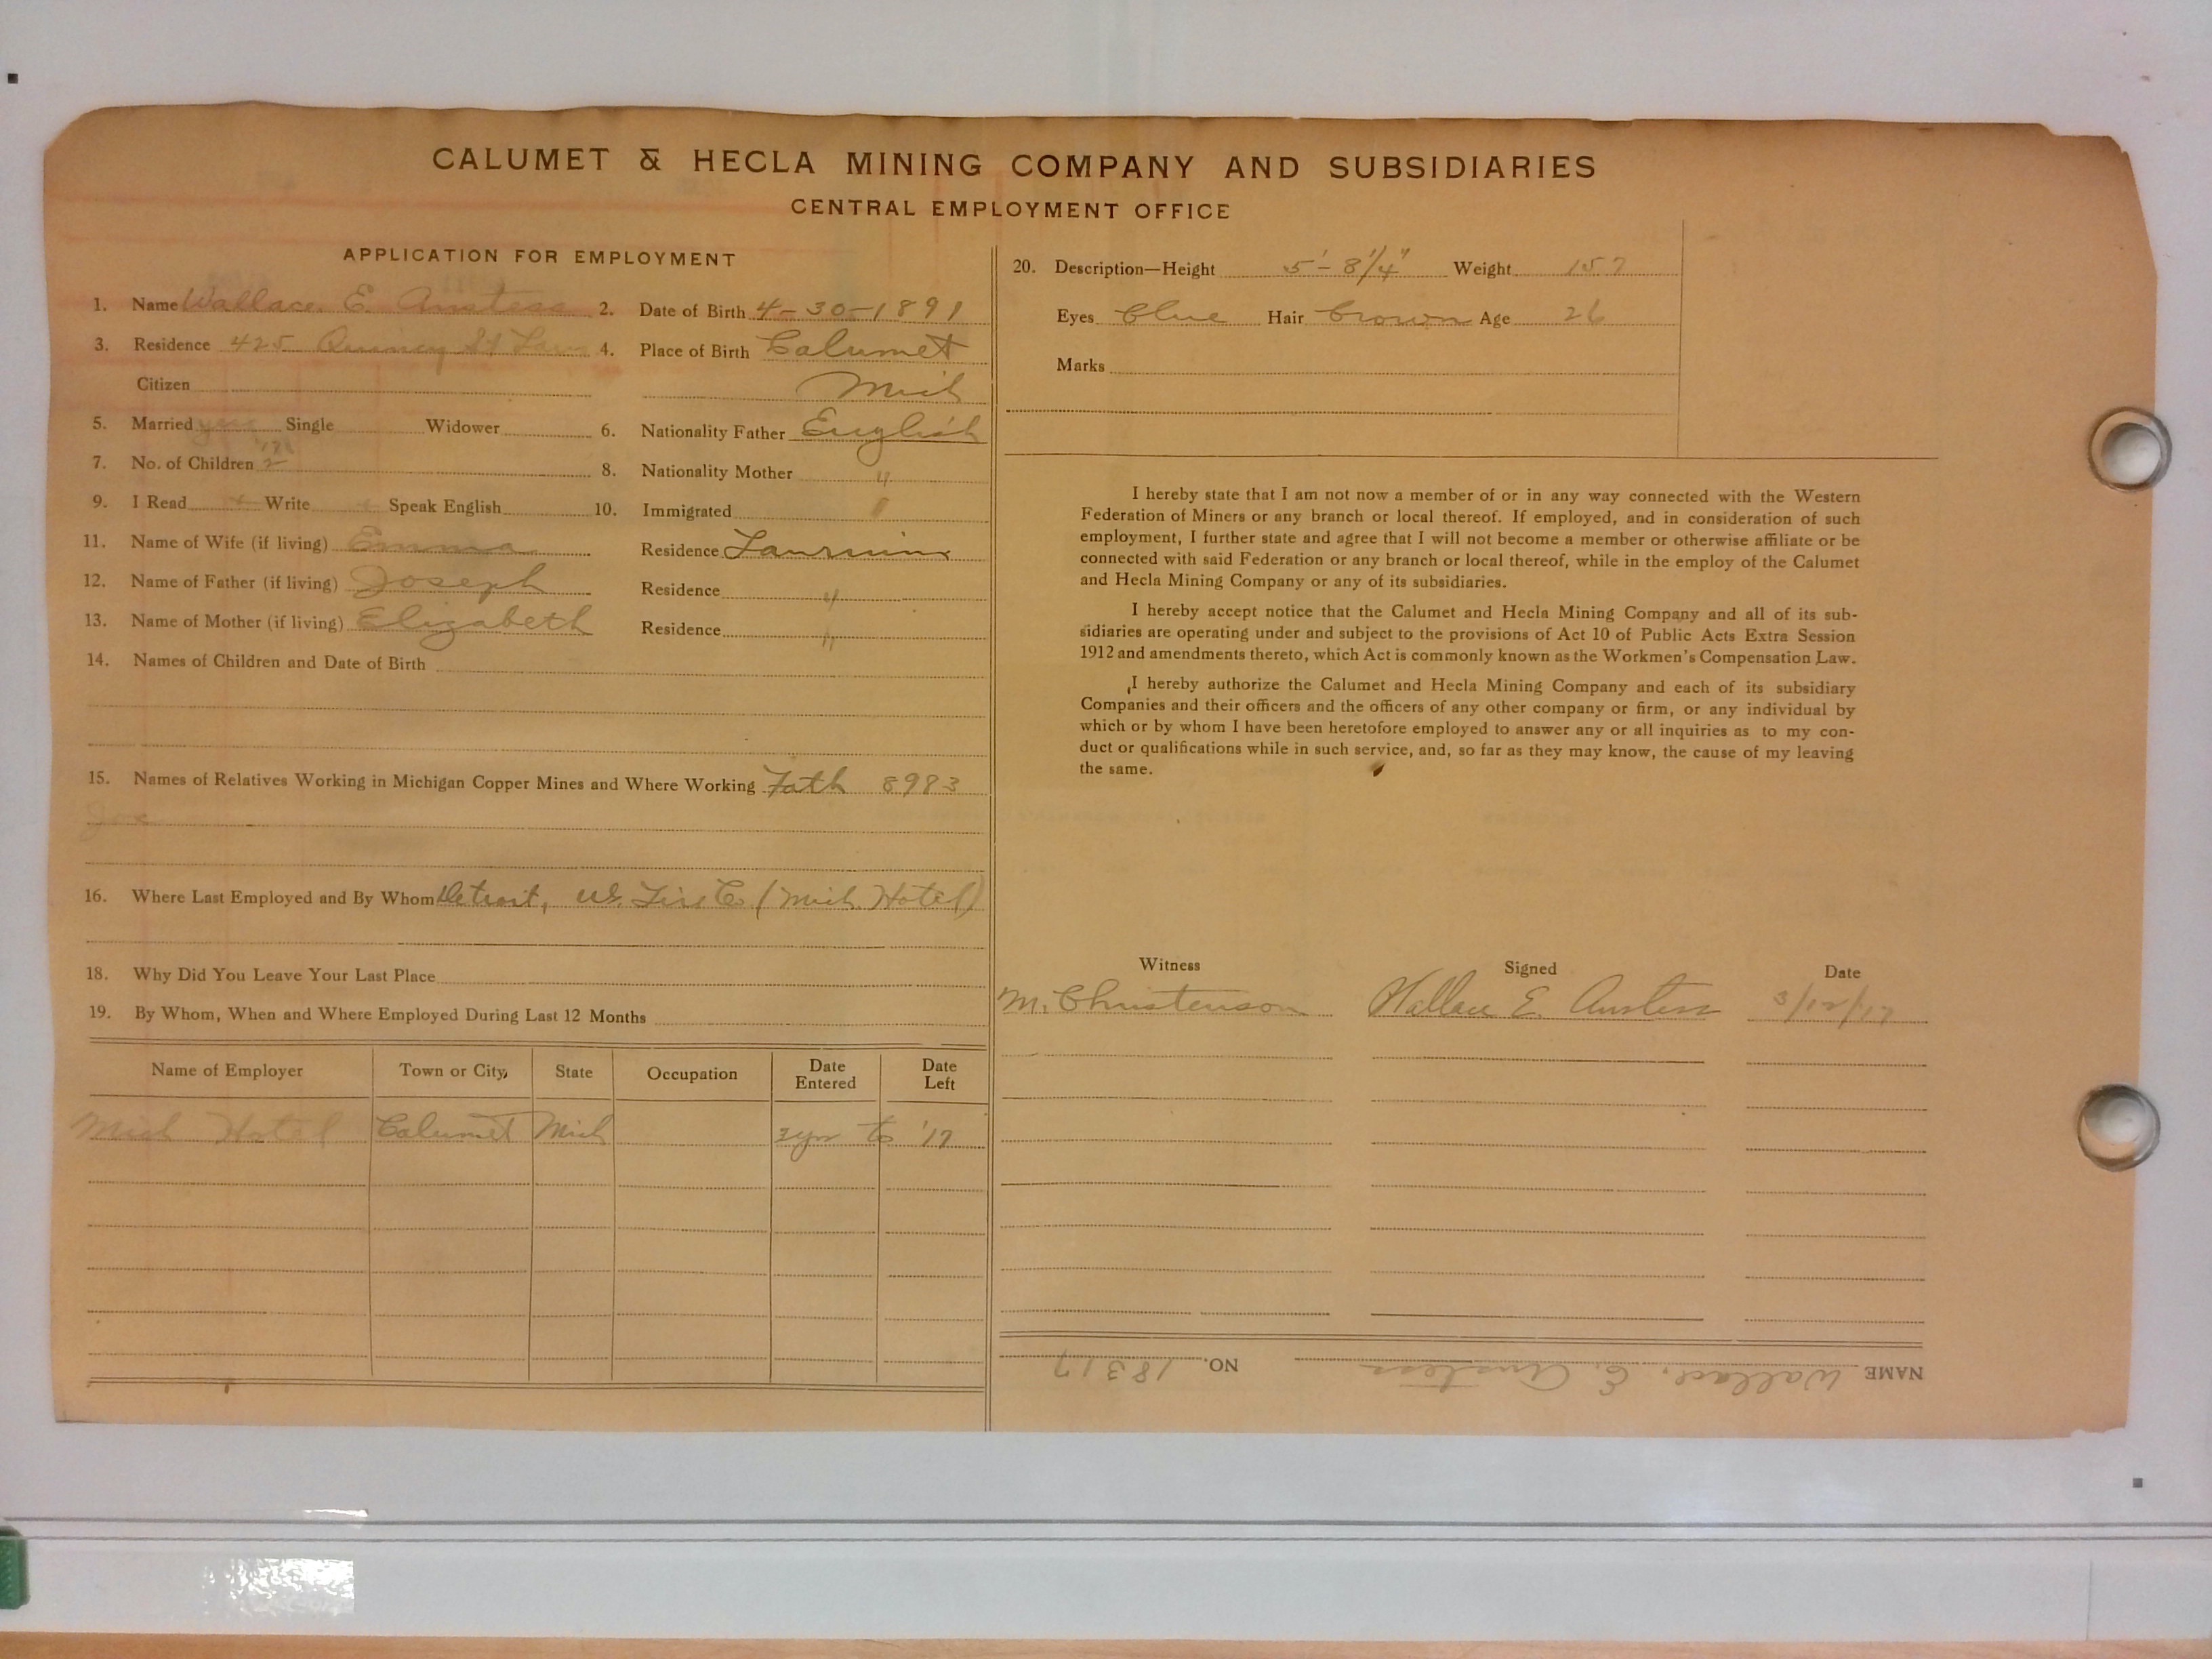 CALUMET & HECLA MINING COMPANY AND SUBSIDIARIES
CENTRAL EMPLOYMENT OFFICE
APPLICATION FOR EMPLOYMENT
1. Name Wallace E. Anstess 2. Date of Birth 4-30-1891
3. Residence 425 Quincy St Lau 4. Place of Birth Calumet
Citizen Mich
5. Married yes Single Widower 6. Nationality Father English
7. No. of Children 2 8. Nationality Mother "
9. I Read Write Speak English 10. Immigrated
11. Name of Wife (if living) Emma Residence Laurium
12. Name of Father (if living) Joseph Residence "
13. Name of Mother (if living) Elizabeth Residence "
14. Names of Children and Date of Birth
15. Names of Relatives Working in Michigan Copper Mines and Where Working Fath 8983
Joe
16. Where Last Employed and By Whom Detroit, U.S. Tire Co (Mich Hotel)
18. Why Did You Leave Your Last Place
19. By Whom, When and Where Employed During Last 12 Months
Name of Employer Town or City State Occupation Date Entered Date Left
Mich Hotel Calumet Mich yr to '17
20. Description—Height 5'-8 1/4" Weight 157
Eyes Blue Hair Brown Age 26
Marks
I hereby state that I am not now a member of or in any way connected with the Western
Federation of Miners or any branch or local thereof. If employed, and in consideration of such
employment, I further state and agree that I will not become a member or otherwise affiliate or be
connected with said Federation or any branch or local thereof, while in the employ of the Calumet
and Hecla Mining Company or any of its subsidiaries.
I hereby accept notice that the Calumet and Hecla Mining Company and all of its sub-
sidiaries are operating under and subject to the provisions of Act 10 of Public Acts Extra Session
1912 and amendments thereto, which Act is commonly known as the Workmen's Compensation Law.
I hereby authorize the Calumet and Hecla Mining Company and each of its subsidiary
Companies and their officers and the officers of any other company or firm, or any individual by
which or by whom I have been heretofore employed to answer any or all inquiries as to my con-
duct or qualifications while in such service, and, so far as they may know, the cause of my leaving
the same.
Witness Signed Date
M. Christenson Wallace E. Anstess 3/12/17
NAME Wallace, E. Anstess NO. 18317